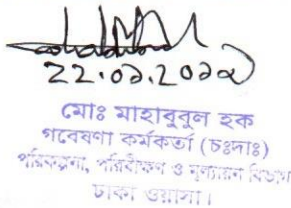 22.09.2019
মোঃ মাহাবুবুল হক
গবেষণা কর্মকর্তা (চঃদাঃ)
পরিকল্পনা, পরিবীক্ষণ ও মূল্যায়ন বিভাগ
ঢাকা ওয়াসা।